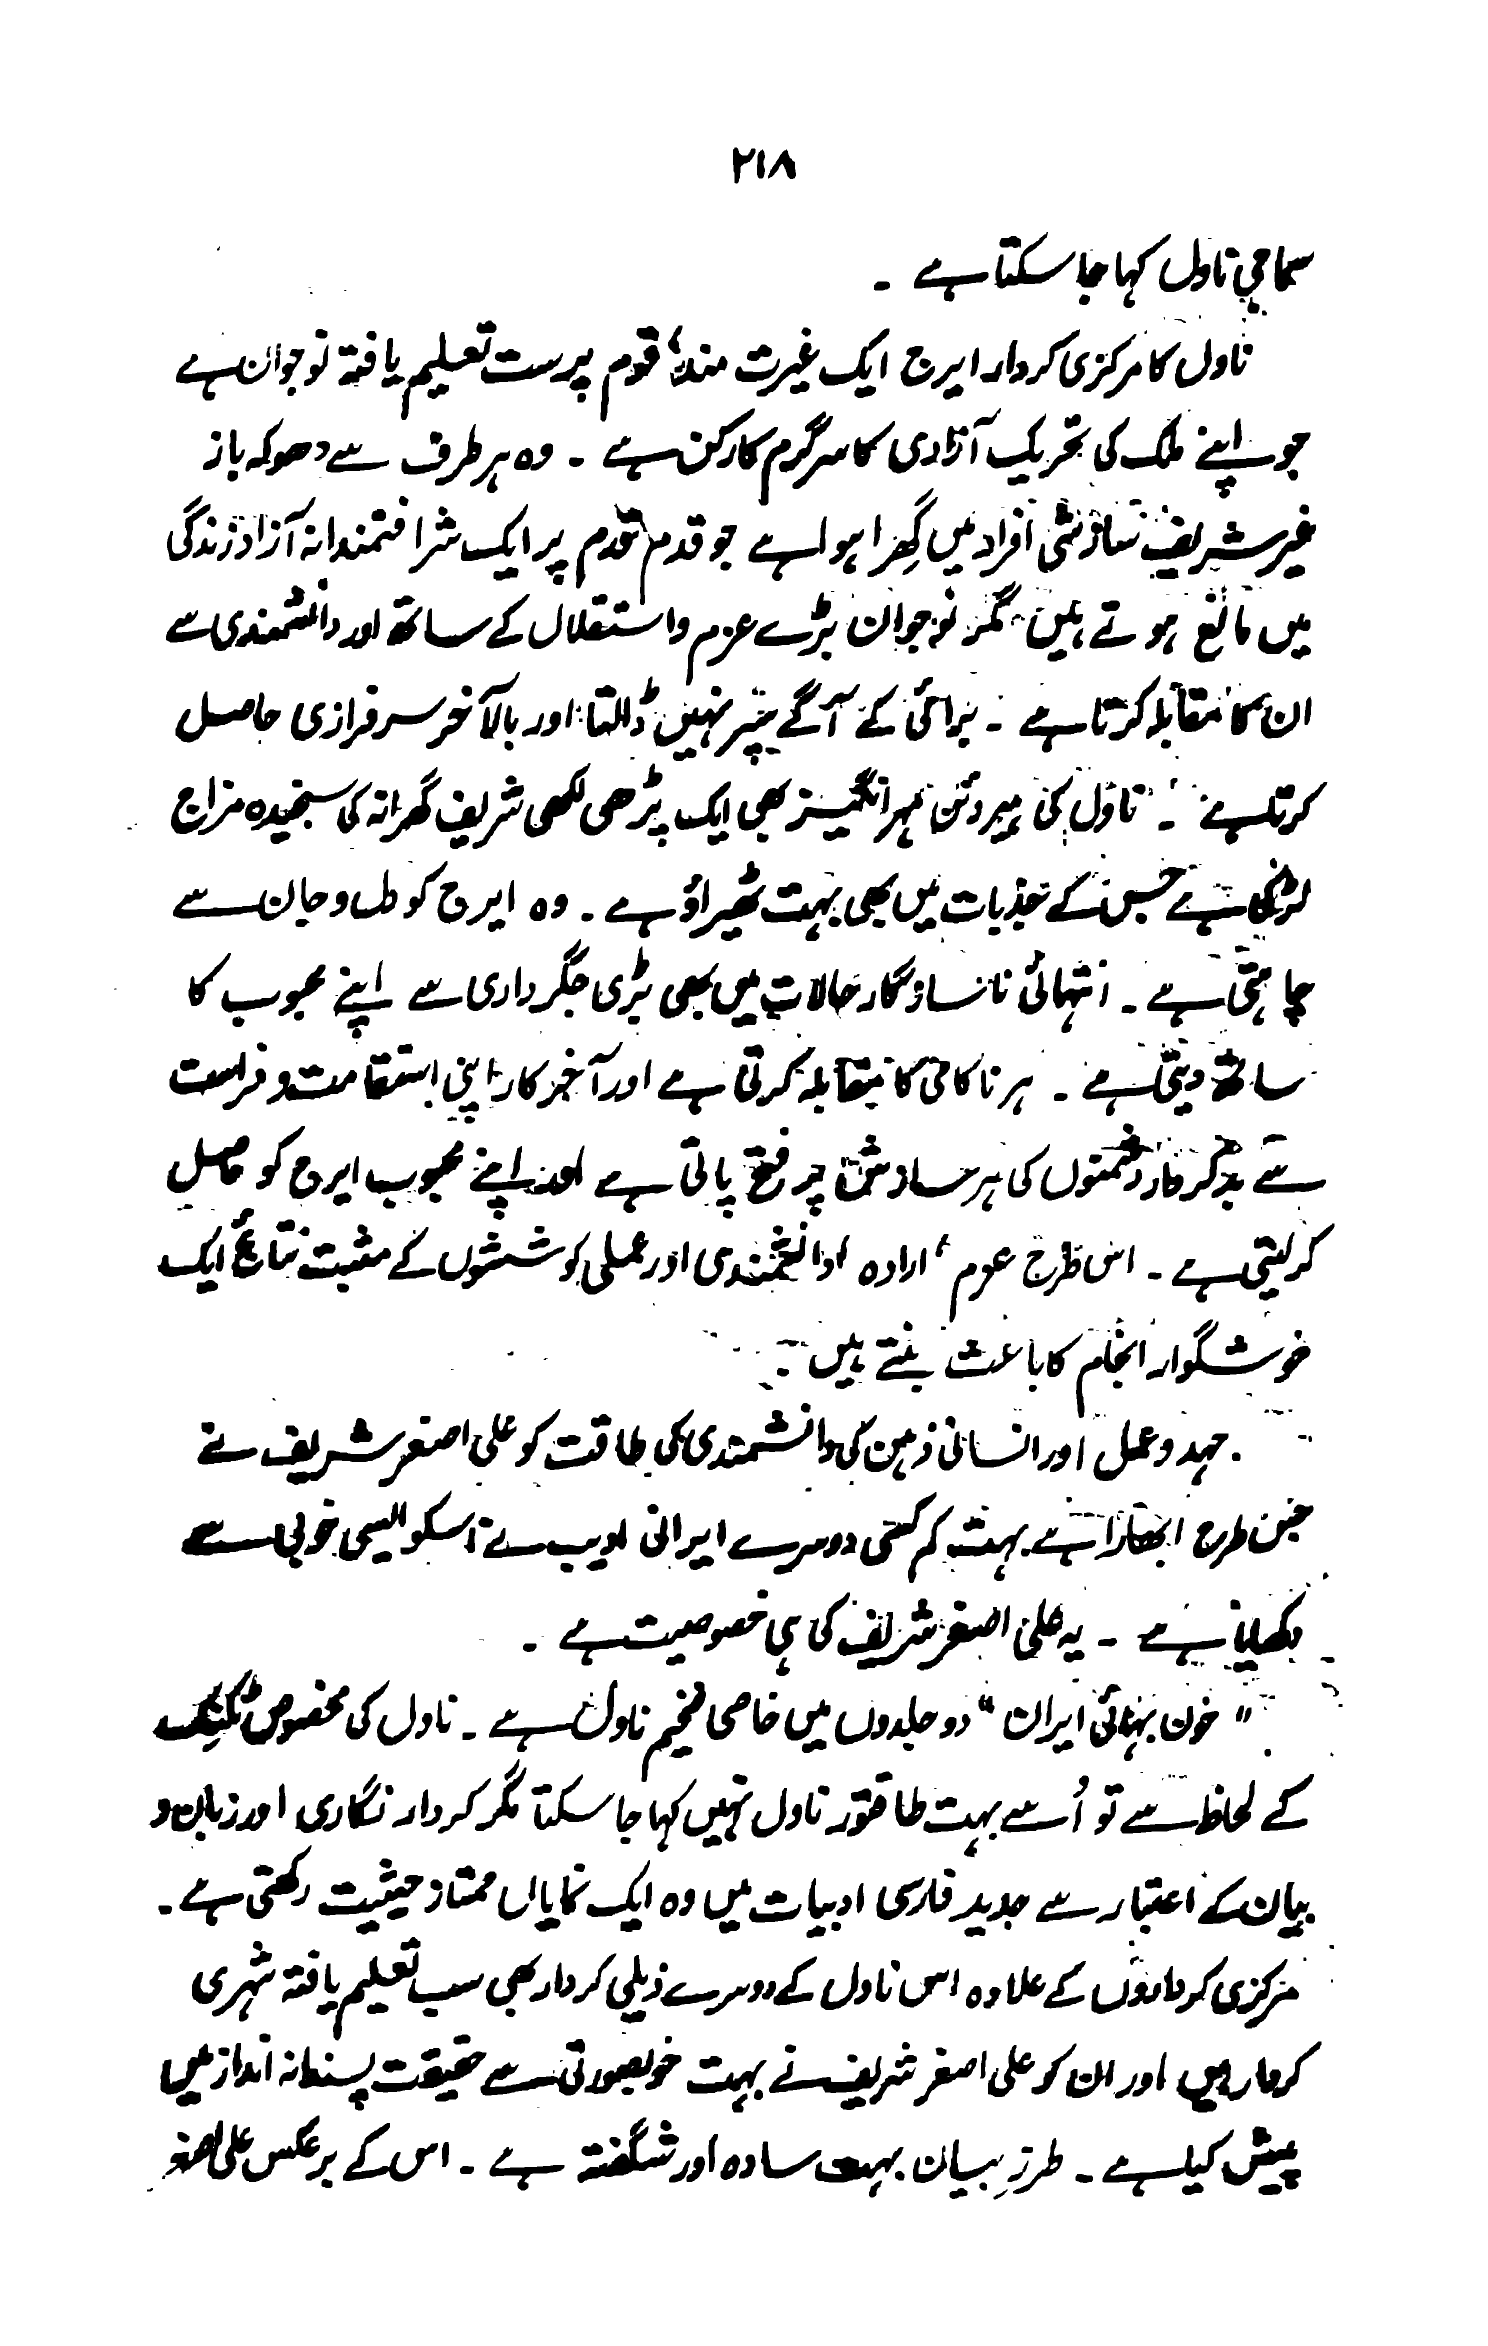 ۲۱۸
سماجی ناول کہا جا سکتا ہے ۔
ناول کا مرکزی کردار ایرج ایک غیرت مند، قوم پرست تعلیم یافتہ نوجوان ہے
جو اپنے ملک کی تحریک آزادی کا سرگرم کارکن ہے ۔ وہ ہر طرف سے دھوکہ باز
غیر شریف سازشی افراد میں گِھرا ہوا ہے جو قدم قدم پر ایک شرافتمندانہ آزاد زندگی
میں مانع ہوتے ہیں مگر نوجوان بڑے عزم و استقلال کے ساتھ اور دانشمندی سے
ان کا مقابلہ کرتا ہے ۔ برائی کے آگے سپر نہیں ڈالتا اور بالآخر سرفرازی حاصل
کرتا ہے ۔ ناول کی ہیروئن مہر انگیز بھی ایک پڑھی لکھی شریف گھرانہ کی سنجیدہ مزاج
لڑکی ہے جس کے جذبات میں بھی بہت ٹھیراؤ ہے ۔ وہ ایرج کو دل و جان سے
چاہتی ہے ۔ انتہائی ناسازگار حالات میں بھی بڑی جگرداری سے اپنے محبوب کا
ساتھ دیتی ہے ۔ ہر ناکامی کا مقابلہ کرتی ہے اور آخر کار اپنی استقامت و فراست
سے بدکردار دشمنوں کی ہر سازش پر فتح پاتی ہے اور اپنے محبوب ایرج کو حاصل
کر لیتی ہے ۔ اس طرح عزم، ارادہ دانشمندی اور عملی کوششوں کے مثبت نتائج ایک
خوشگوار انجام کا باعث بنتے ہیں ۔
جہد و عمل اور انسانی ذہن کی دانشمندی کی طاقت کو علی اصغر شریف نے
جس طرح ابھارا ہے بہت کم کسی دوسرے ایرانی ادیب نے اسکو ایسی خوبی سے
دکھلایا ہے ۔ یہ علی اصغر شریف کی ہی خصوصیت ہے ۔
" خون بہائی ایران " دو جلدوں میں خاصی ضخیم ناول ہے ۔ ناول کی مخصوص ٹکنیک
کے لحاظ سے تو اُسے بہت طاقتور ناول نہیں کہا جا سکتا مگر کردار نگاری اور زبان و
بیان کے اعتبار سے جدید فارسی ادبیات میں وہ ایک نمایاں ممتاز حیثیت رکھتی ہے ۔
مرکزی کرداروں کے علاوہ اس ناول کے دوسرے ذیلی کردار بھی سب تعلیم یافتہ شہری
کردار ہیں اور ان کو علی اصغر شریف نے بہت خوبصورتی سے حقیقت پسندانہ انداز میں
پیش کیا ہے ۔ طرزِ بیان بہت سادہ اور شگفتہ ہے ۔ اس کے برعکس علی اصغر